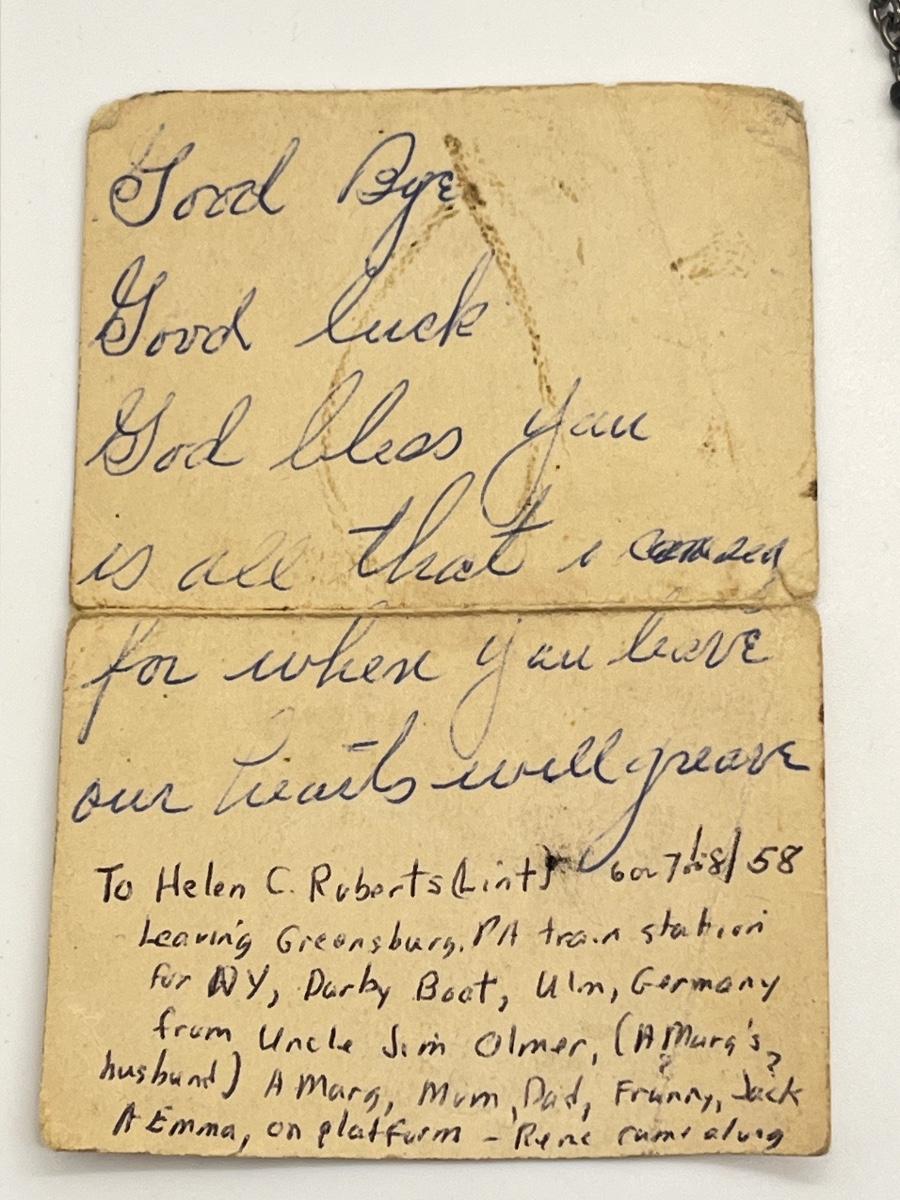 Good Bye
Good luck
God bless you
is all that i can say
for when you leave
our hearts will greave
To Helen C. Roberts (Lint) 6 or 7/ /58
Leaving Greensburg, PA train station
for NY, Darby Boat, Ulm, Germany
from Uncle Jim Olmer, (A Marg's
husband) A Marg, Mum, Dad, Franny, Jack
A Emma, on platform - Rene came along